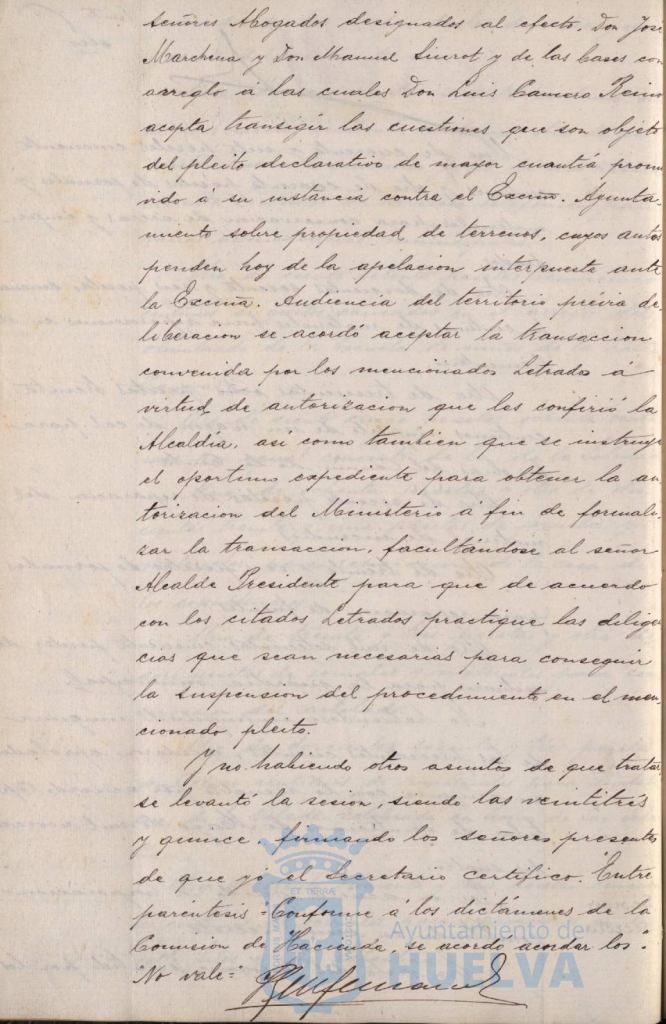 señores Abogados designados al efecto, Don José
Marchena y Don Manuel Siurot y de las bases con
arreglo á las cuales Don Luis Camero Reino
acepta transigir las cuestiones que son objeto
del pleito declarativo de mayor cuantía promo
vido á su instancia contra el Excmo. Ayunta-
miento sobre propiedad de terrenos, cuyos autos
penden hoy de la apelacion interpuesta ante
la Excma. Audiencia del territorio prévia de-
liberacion se acordó aceptar la transaccion
convenida por los mencionados Letrados á
virtud de autorizacion que les confirió la
Alcaldía, así como tambien que se instruya
el oportuno expediente para obtener la au-
torizacion del Ministerio á fin de formali-
zar la transaccion, facultándose al señor
Alcalde Presidente para que de acuerdo
con los citados Letrados practique las diligen
cias que sean necesarias para conseguir
la suspension del procedimiento en el men-
cionado pleito.
Y no habiendo otros asuntos de que tratar
se levantó la sesion, siendo las veintitres
y quince, firmando los señores presentes
de que yo el Secretario certifico. Entre
paréntesis = Conforme á los dictámenes de la
Comision de Hacienda, se acordo acordar los".
"No vale="
ET TERRAE
Ayuntamiento de
HUELVA